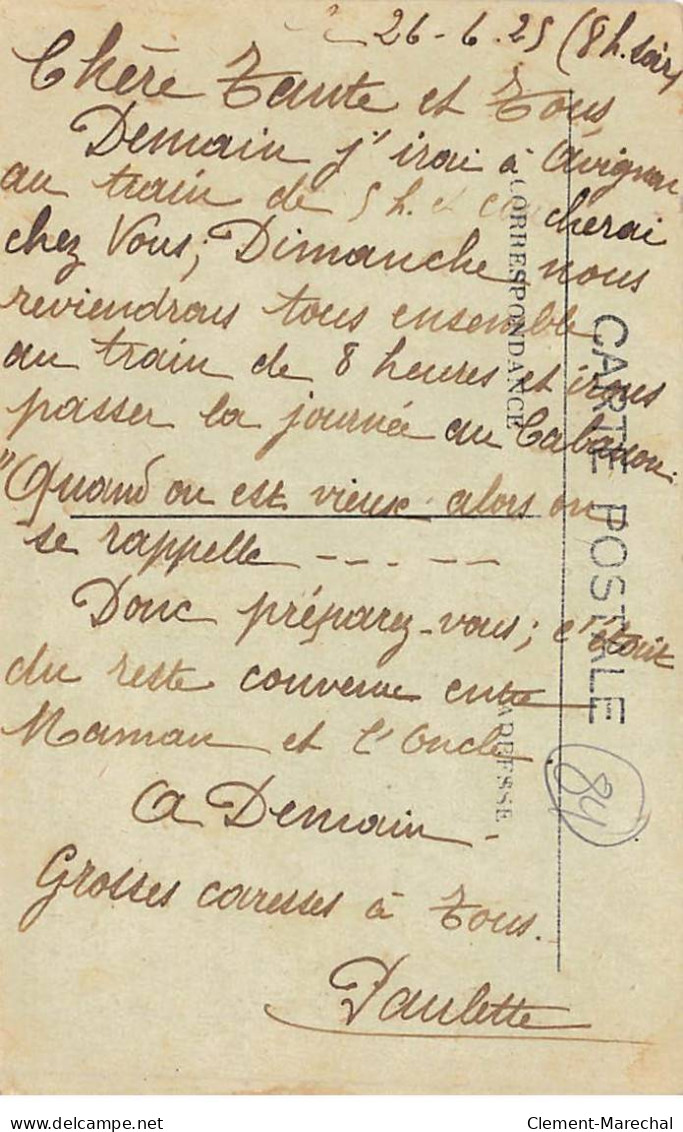 26-6.25 (8h. soir)
Chère Tante et Tous
Demain j'irai à Avignon
au train de 5 h. et coucherai
chez Vous; Dimanche nous
reviendrons tous ensemble
au train de 8 heures et irons
passer la journée au Cabanon.
"Quand on est vieux alors on
se rappelle - - - - -
Donc préparez-vous; c'était
du reste convenu entre
Maman et l'Oncle.
A Demain.
Grosses caresses à Tous.
Paulette
CORRESPONDANCE
CARTE POSTALE
ADRESSE
84
delcampe.net
Clement-Marechal